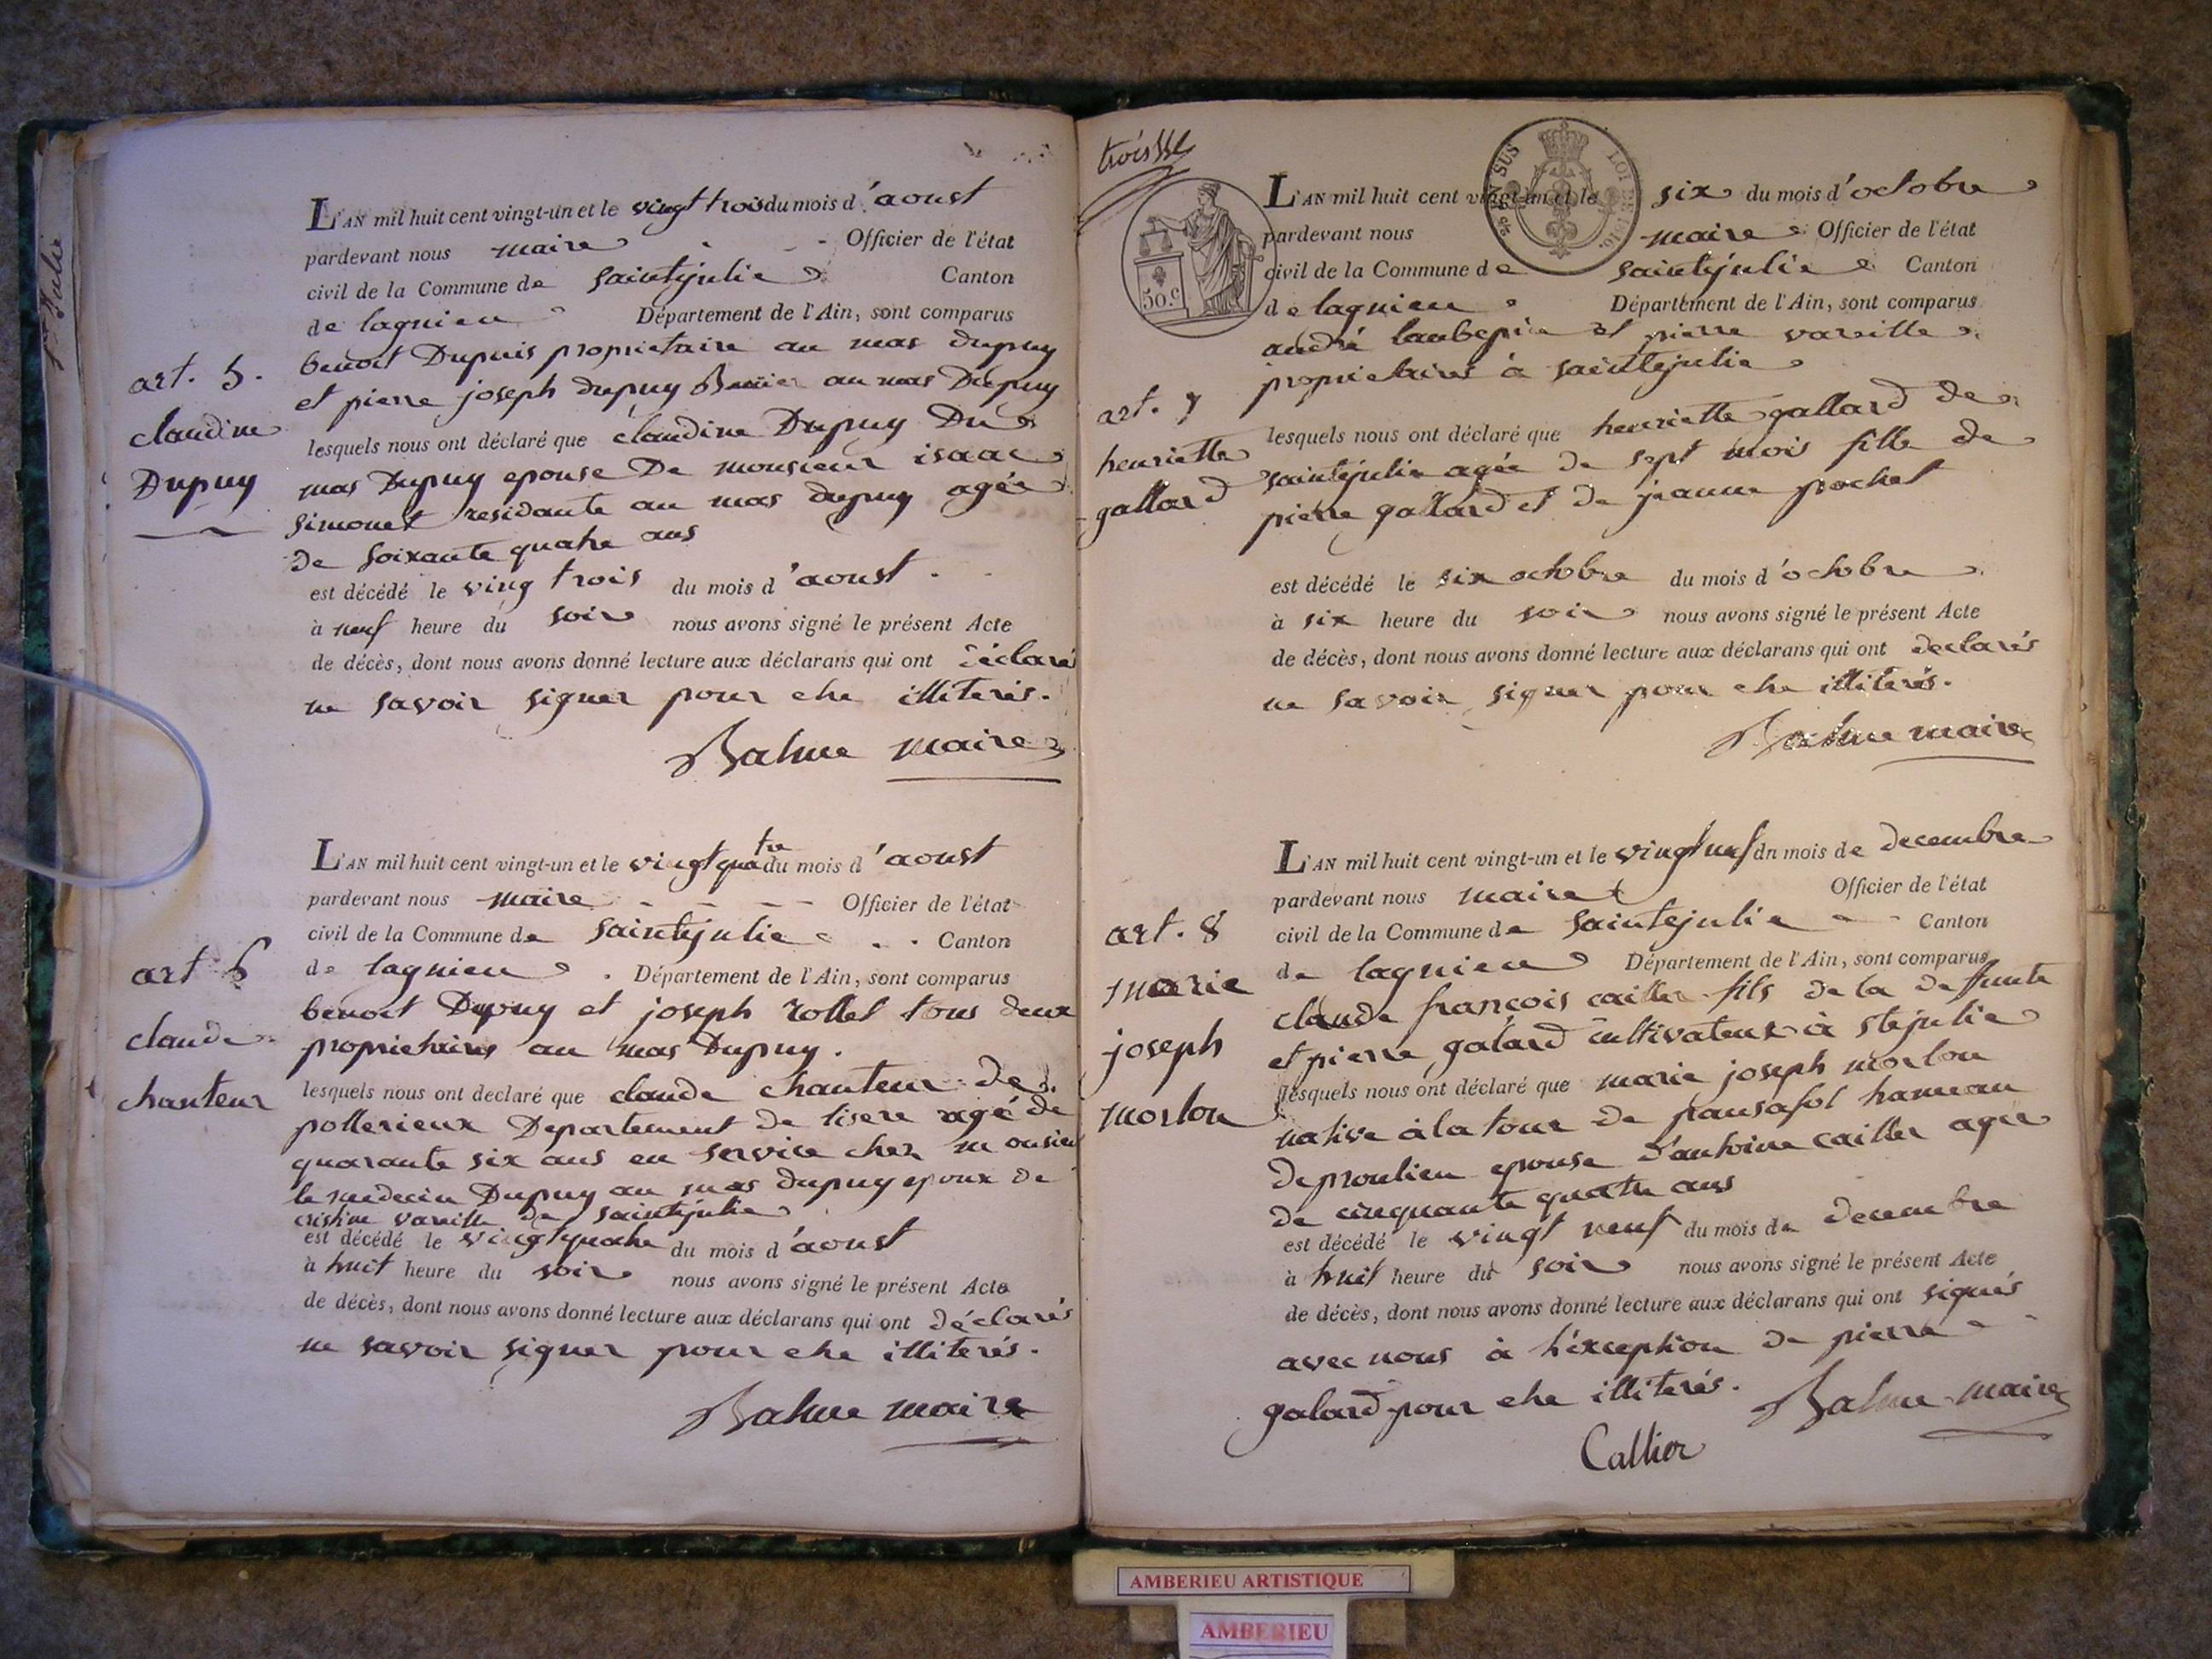 Ste Julie
L'AN mil huit cent vingt-un et le vingt trois du mois d'aoust
pardevant nous maire Officier de l'état
civil de la Commune de saintejulie Canton
de lagnieu Département de l'Ain, sont comparus
benoit Dupuis proprietaire au mas dupuy
et pierre joseph dupuy au mas Dupuy
art. 5.
claudine
Dupuy
lesquels nous ont déclaré que claudine Dupuy Du
mas Dupuy epouse De monsieur isaac
simonet residante au mas dupuy agée
de soixante quatre ans
est décédé le ving trois du mois d'aoust.
à neuf heure du soir nous avons signé le présent Acte
de décès, dont nous avons donné lecture aux déclarans qui ont déclarés
ne savoir signer pour etre illiterés.
Balme maire
L'AN mil huit cent vingt-un et le vingt quatre du mois d'aoust
pardevant nous maire Officier de l'état
civil de la Commune de saintejulie Canton
de lagnieu Département de l'Ain, sont comparus
benoit Dupuy et joseph rollet tous deux
proprietaires au mas Dupuy.
art 6
claude
chanteur
lesquels nous ont declaré que claude chanteur de
pollerieux Departement de lisere agé de
quarante six ans en service chez monsieu
le medecin Dupuy au mas dupuy epoux de
cristine vareille de saintejulie
est décédé le vingtquatre du mois d'aoust
à huit heure du soir nous avons signé le présent Acte
de décès, dont nous avons donné lecture aux déclarans qui ont déclarés
ne savoir signer pour etre illiterés.
Balme maire
50.c
SUS
LOI DE 1816.
L'AN mil huit cent vingt-un et le six du mois d'octobre
pardevant nous maire Officier de l'état
civil de la Commune de saintejulie Canton
de lagnieu Département de l'Ain, sont comparus
andré laubepin et pierre vareille
proprietaires à saintejulie
art. 7
henriette
gallard
lesquels nous ont déclaré que henriette gallard de
saintejulie agée de sept mois fille de
pierre gallard et de jeanne pochet
est décédé le six octobre du mois d'octobre
à six heure du soir nous avons signé le présent Acte
de décès, dont nous avons donné lecture aux déclarans qui ont declarés
ne savoir signer pour etre illiterés.
Balme maire
L'AN mil huit cent vingt-un et le vingt neuf du mois de decembre
pardevant nous maire Officier de l'état
civil de la Commune de saintejulie Canton
de lagnieu Département de l'Ain, sont comparus
claude françois cailler fils de la deffunte
et pierre galard cultivateur à stejulie
art. 8
marie
joseph
morlon
lesquels nous ont déclaré que marie joseph morlon
native à la tour de pansafol hameau
de proulieu epouse d'antoine cailler agée
de cinquante quatre ans
est décédé le vingt neuf du mois de decembre
à huit heure du soir nous avons signé le présent Acte
de décès, dont nous avons donné lecture aux déclarans qui ont signés
avec nous à l'exception de pierre
galard pour etre illiterés. Balme maire
Callier
AMBERIEU ARTISTIQUE
AMBERIEU